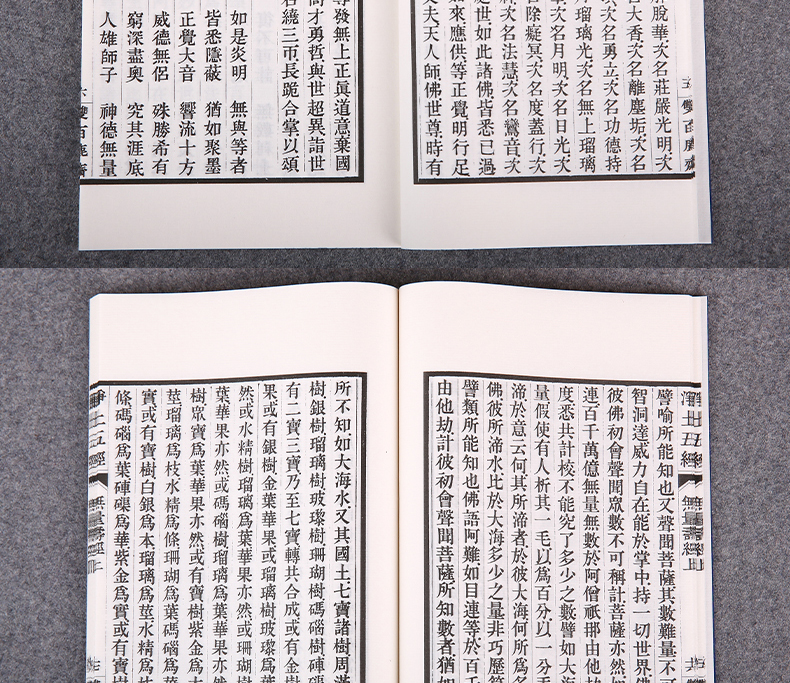 五 雙百鹿齋
脫華次名莊嚴光明次
名大香次名離塵垢次名
次名勇立次名功德持
瑠璃光次名無上瑠璃
次名月明次名日光次
除癡冥次名度蓋行次
次名法慧次名鸞音次
世如此諸佛皆悉已過
如來應供等正覺明行足
丈夫天人師佛世尊時有
發無上正眞道意棄國
高才勇哲與世超異詣世
右繞三帀長跪合掌以頌
如是炎明 無與等者
皆悉隱蔽 猶如聚墨
正覺大音 響流十方
威德無侶 殊勝希有
窮深盡奧 究其涯底
人雄師子 神德無量
六 雙百鹿齋
淨土五經 無量壽經上
譬喻所能知也又聲聞菩薩其數難量不可
智洞達威力自在能於掌中持一切世界佛
彼佛初會聲聞眾數不可稱計菩薩亦然如
連百千萬億無量無數於阿僧祇那由他劫
度悉共計校不能究了多少之數譬如大海
量假使有人析其一毛以爲百分以一分毛
渧於意云何其所渧者於彼大海何所爲多
佛彼所渧水比於大海多少之量非巧歷算
譬類所能知也佛語阿難如目連等於百千
由他劫計彼初會聲聞菩薩所知數者猶如
所不知如大海水又其國土七寶諸樹周滿
樹銀樹瑠璃樹玻瓈樹珊瑚樹碼碯樹硨
有二寶三寶乃至七寶轉共合成或有金樹
果或有銀樹金葉華果或瑠璃樹玻瓈爲
然或水精樹瑠璃爲葉華果亦然或珊瑚
葉華果亦然或碼碯樹瑠璃爲葉華果亦然
樹眾寶爲葉華果亦然或有寶樹紫金爲本
莖瑠璃爲枝水精爲條珊瑚爲葉碼碯爲華
實或有寶樹白銀爲本瑠璃爲莖水精爲
條碼碯爲葉硨磲爲華紫金爲實或有寶樹
淨土五經 無量壽經上